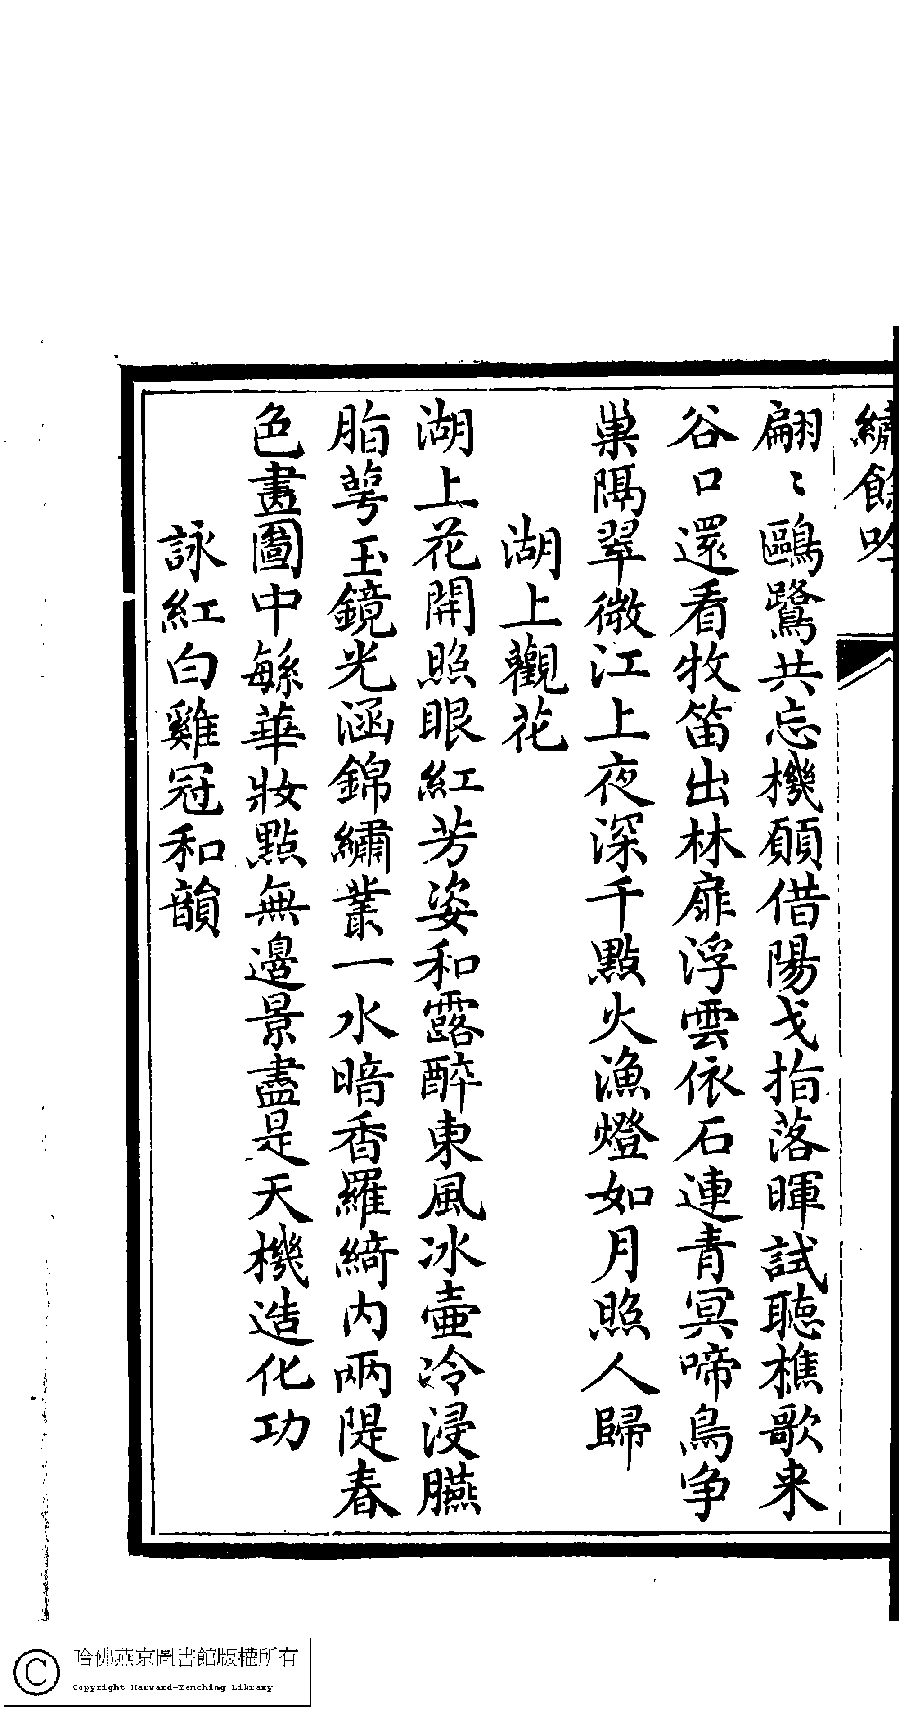 繡餘吟
翩〻鷗鷺共忘機願借陽戈指落暉試聽樵歌来
谷口還看牧笛出林扉浮雲依石連青冥啼鳥争
巢隔翠微江上夜深千點火漁燈如月照人歸
湖上觀花
湖上花開照眼紅芳姿和露醉東風冰壷冷浸臙
脂萼玉鏡光涵錦繡叢一水暗香羅綺内兩隄春
色畫圖中緐華妝點無邊景盡是天機造化功
詠紅白雞冠和韻
哈佛燕京圖書館版權所有
Copyright Harvard-Yenching Library